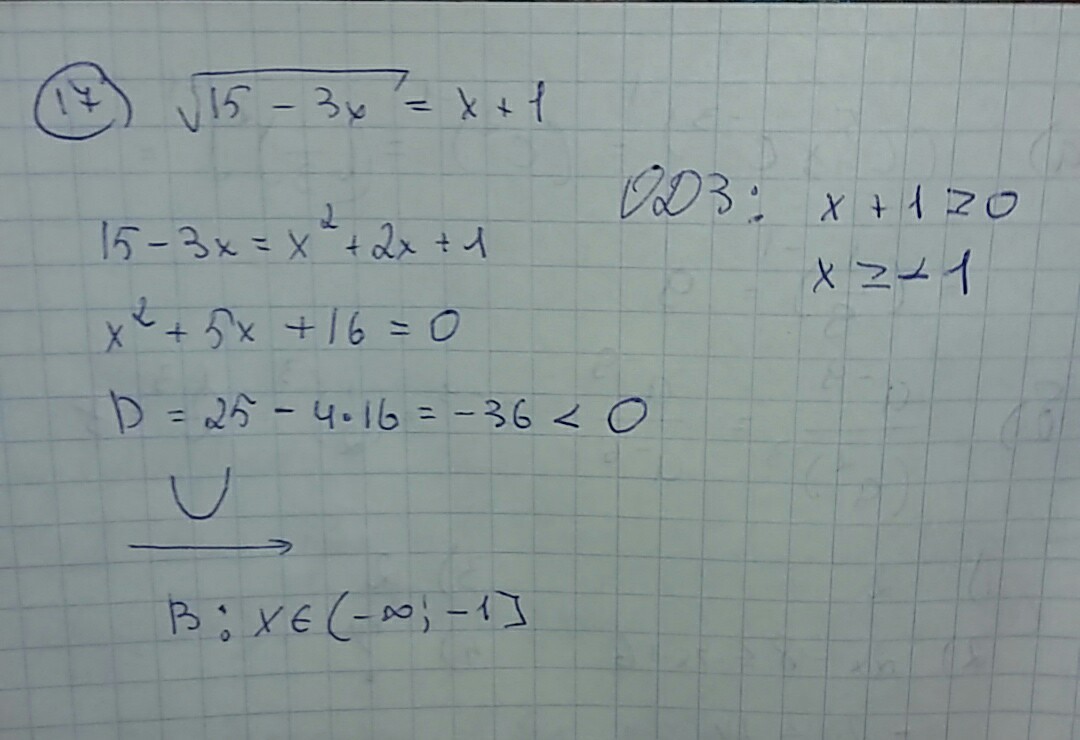 17) √15 - 3x = x + 1
ОДЗ: x + 1 ≥ 0
x ≥ -1
15 - 3x = x² + 2x + 1
x² + 5x + 16 = 0
D = 25 - 4·16 = -36 < 0
В: x ∈ (-∞; -1]